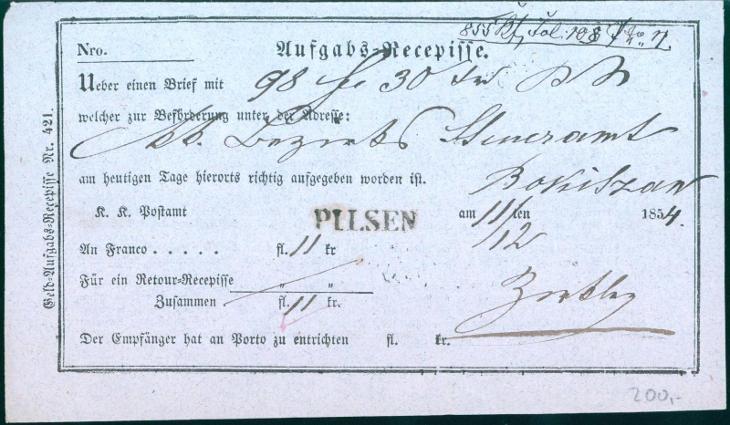 Nro.
Aufgabs-Recepisse.
Ueber einen Brief mit 98 fl 30
welcher zur Beförderung unter der Adresse:
kk. Bezirks Steueramt
am heutigen Tage hierorts richtig aufgegeben worden ist.
K. K. Postamt PILSEN am 11/ten 12 1854.
An Franco . . . . . fl. 11 kr
Für ein Retour-Recepisse " "
Zusammen fl. 11 kr.
Der Empfänger hat an Porto zu entrichten fl. kr.
Geld-Aufgabs-Recepisse Nr. 421.
200,-